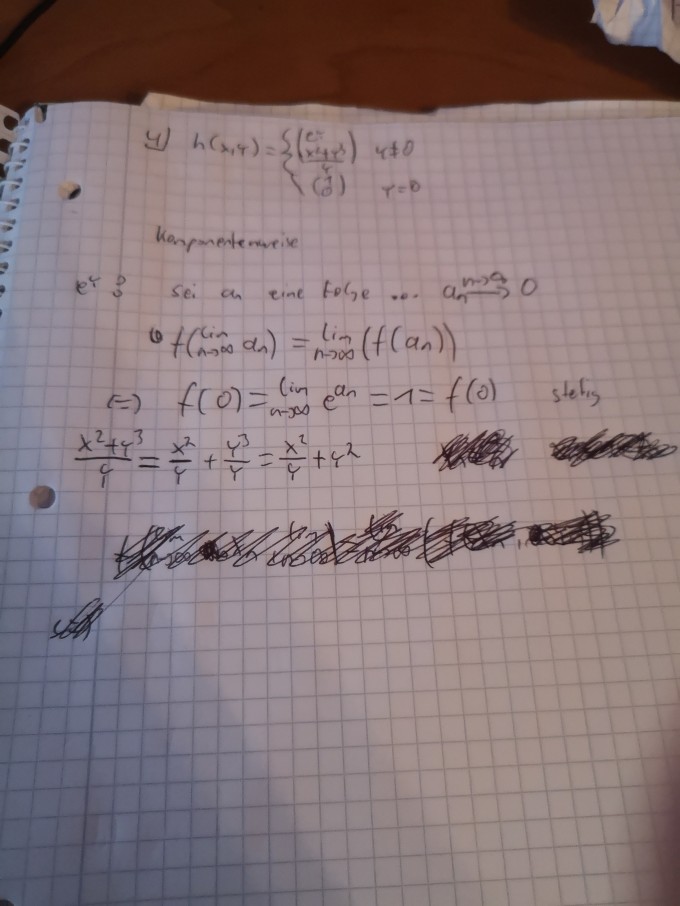 4) h(x,y) = { ( e^y
x²+y³ / y ) y≠0
( 1
0 ) y=0
Komponentenweise
e^y : sei an eine Folge ... an n→∞ → 0
f(lim n→∞ an) = lim n→∞ (f(an))
(=) f(0) = lim n→∞ e^an = 1 = f(0) stetig
x²+y³ / y = x² / y + y³ / y = x² / y + y²